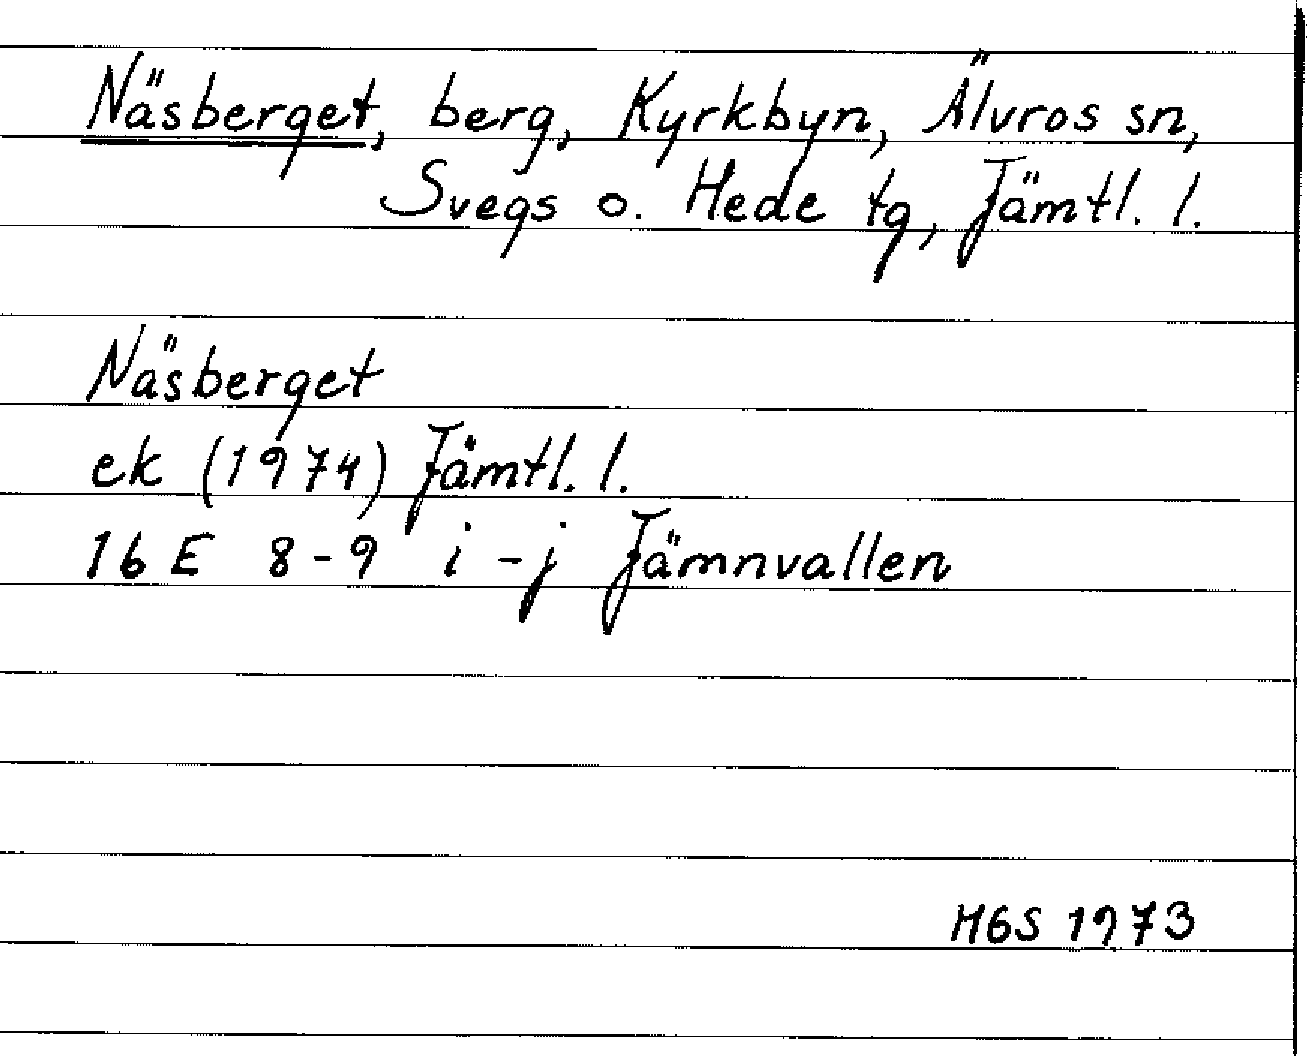 Näsberget, berg, Kyrkbyn, Älvros sn,
Svegs o. Hede tg, Jämtl. l.
Näsberget
ek (1974) Jämtl. l.
16 E 8-9 i-j Jämnvallen
MGS 1973